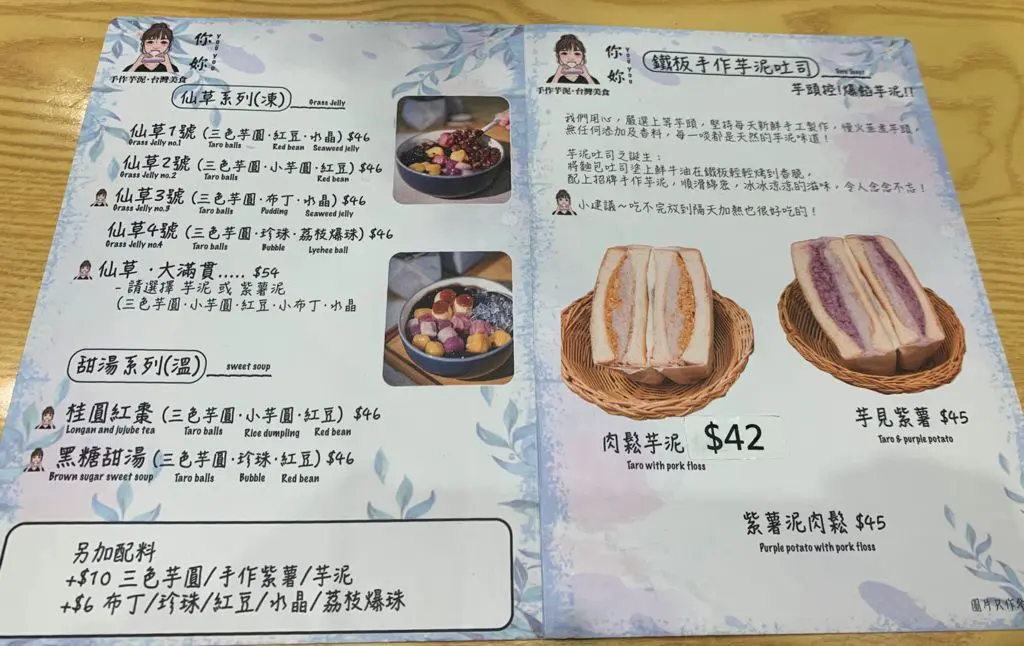 你妳
YOU YOU
手作芋泥·台灣美食
仙草系列(凍)
Grass Jelly
仙草1號 (三色芋圓·紅豆·水晶) $46
Grass Jelly no.1 Taro balls Red bean Seaweed jelly
仙草2號 (三色芋圓·小芋圓·紅豆) $46
Grass Jelly no.2 Taro balls Red bean
仙草3號 (三色芋圓·布丁·水晶) $46
Grass Jelly no.3 Taro balls Pudding Seaweed jelly
仙草4號 (三色芋圓·珍珠·荔枝爆珠) $46
Grass Jelly no4 Taro balls Bubble Lychee ball
仙草·大滿貫..... $54
- 請選擇 芋泥 或 紫薯泥
(三色芋圓·小芋圓·紅豆·小布丁·水晶
甜湯系列(溫)
sweet soup
桂圓紅棗 (三色芋圓·小芋圓·紅豆) $46
Longan and jujube tea Taro balls Rice dumpling Red bean
黑糖甜湯 (三色芋圓·珍珠·紅豆) $46
Brown sugar sweet soup Taro balls Bubble Red bean
另加配料
+$10 三色芋圓/手作紫薯/芋泥
+$6 布丁/珍珠/紅豆/水晶/荔枝爆珠
你妳
YOU YOU
手作芋泥·台灣美食
鐵板手作芋泥吐司
芋頭控!爆餡芋泥!!
我們用心，嚴選上等芋頭，堅持每天新鮮手工製作，慢火蒸煮芋頭，
無任何添加及香料，每一啖都是天然的芋泥味道！
芋泥吐司之誕生：
將麵包吐司塗上鮮牛油在鐵板輕輕烤到香脆，
配上招牌手作芋泥，順滑綿密，冰冰涼涼的滋味，令人念念不忘！
小建議～吃不完放到隔天加熱也很好吃的！
肉鬆芋泥 $42
Taro with pork floss
芋見紫薯 $45
Taro & purple potato
紫薯泥肉鬆 $45
Purple potato with pork floss
圖片只作